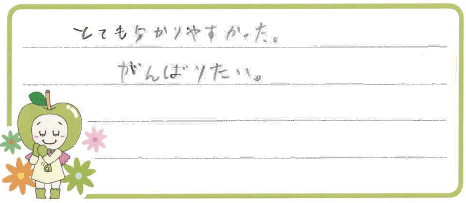 とてもわかりやすかった。
がんばりたい。